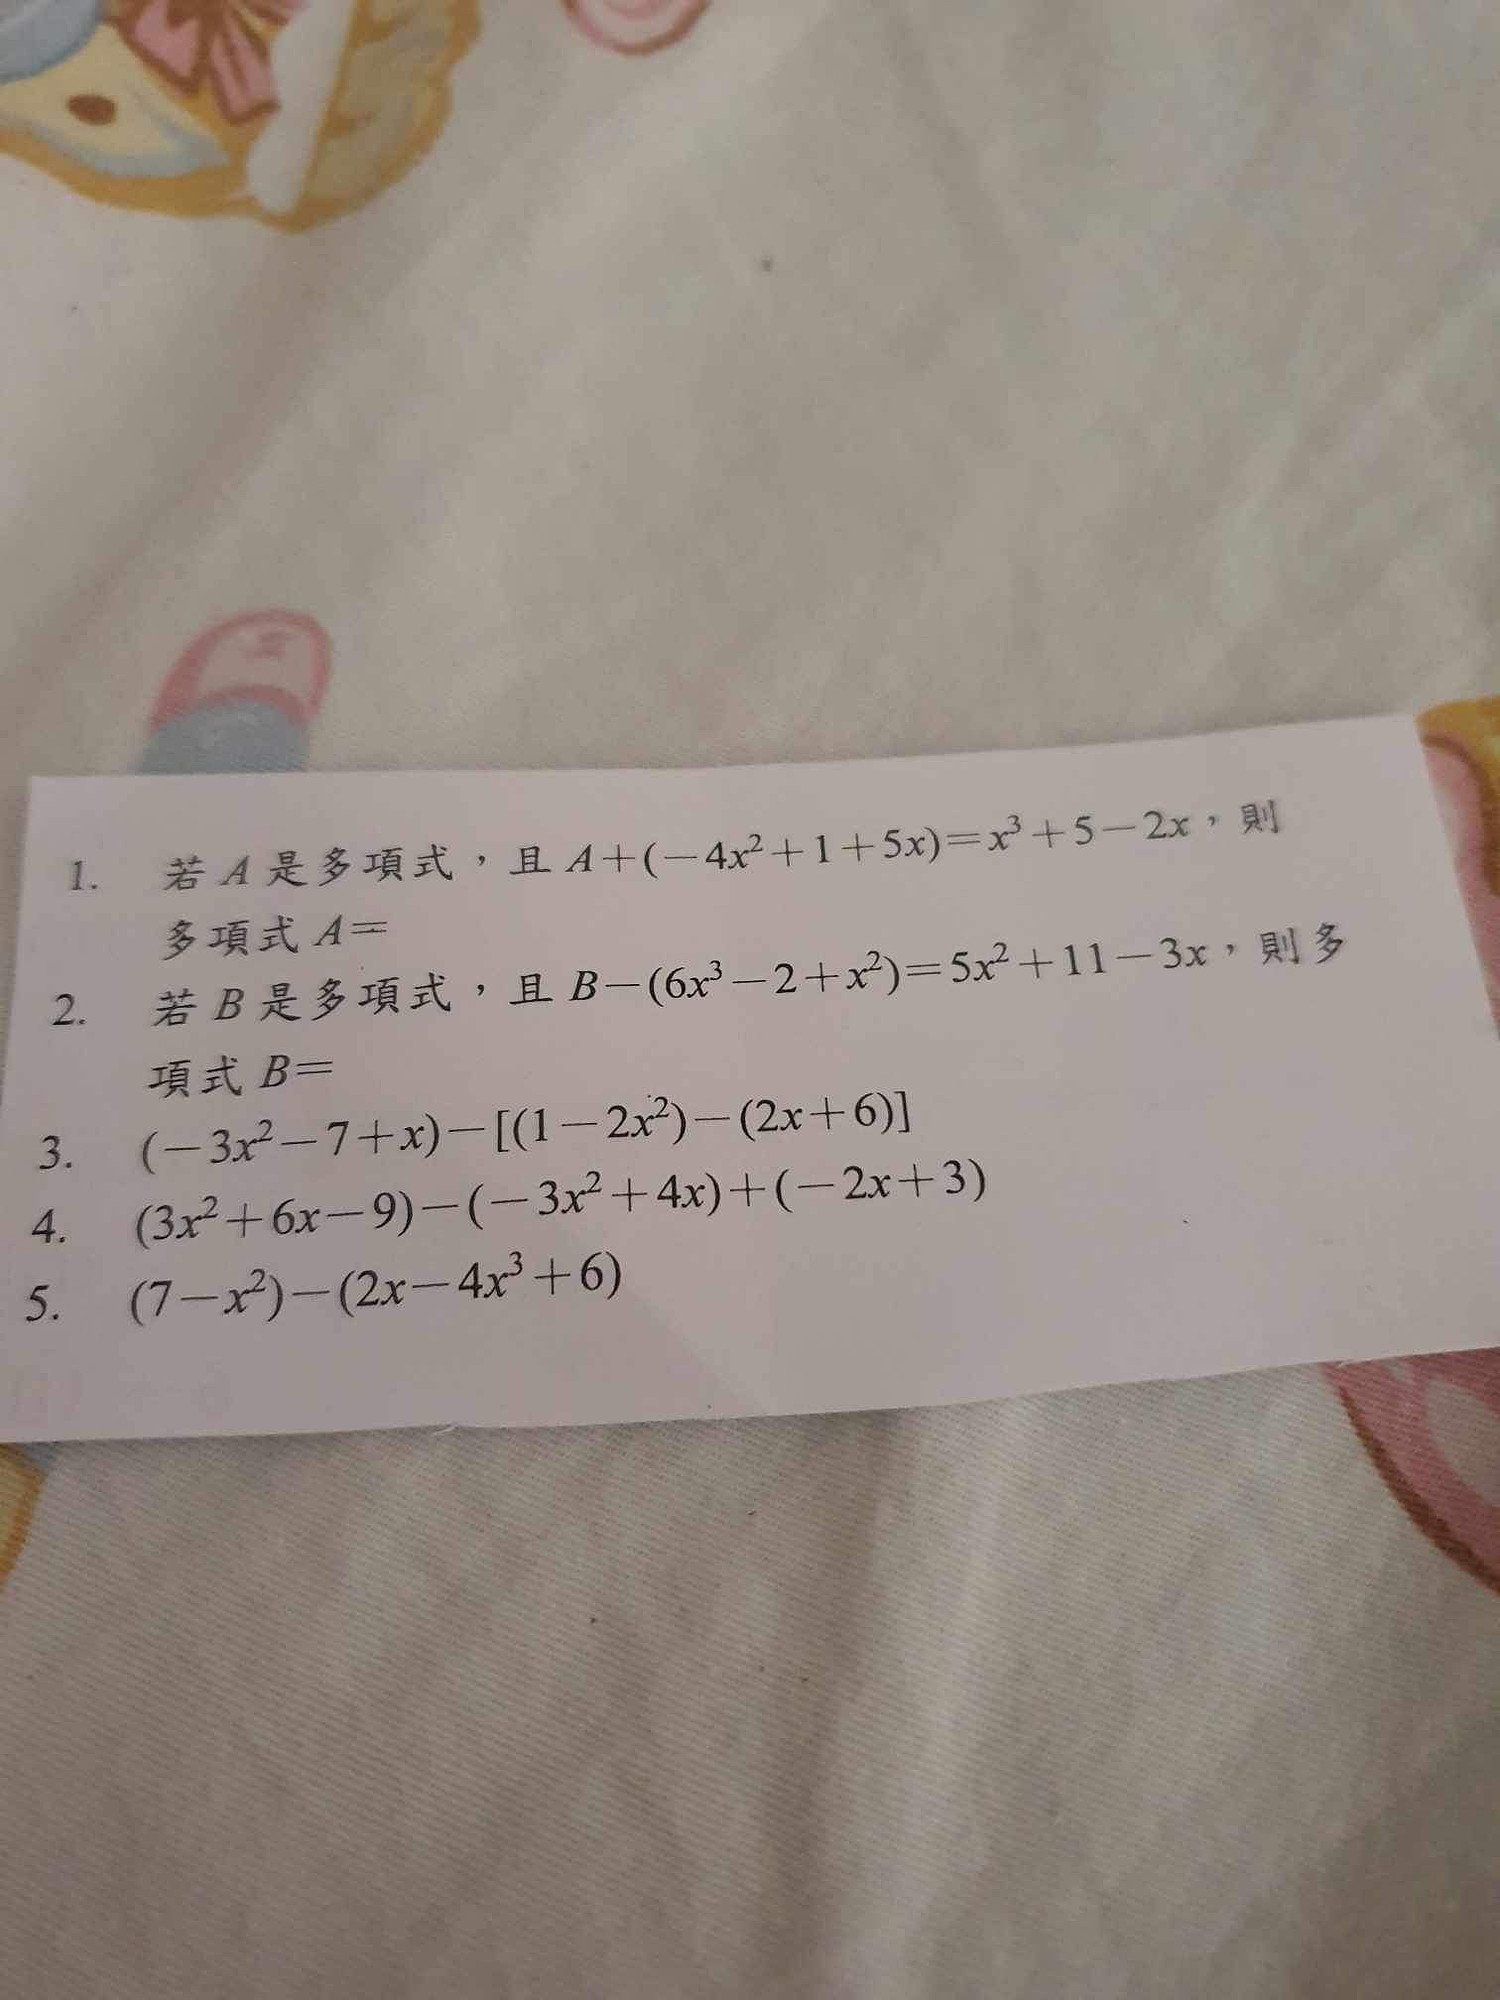 1. 若 A 是多項式，且 A＋(－4x²＋1＋5x)＝x³＋5－2x，則
多項式 A＝
2. 若 B 是多項式，且 B－(6x³－2＋x²)＝5x²＋11－3x，則多
項式 B＝
3. (－3x²－7＋x)－[(1－2x²)－(2x＋6)]
4. (3x²＋6x－9)－(－3x²＋4x)＋(－2x＋3)
5. (7－x²)－(2x－4x³＋6)